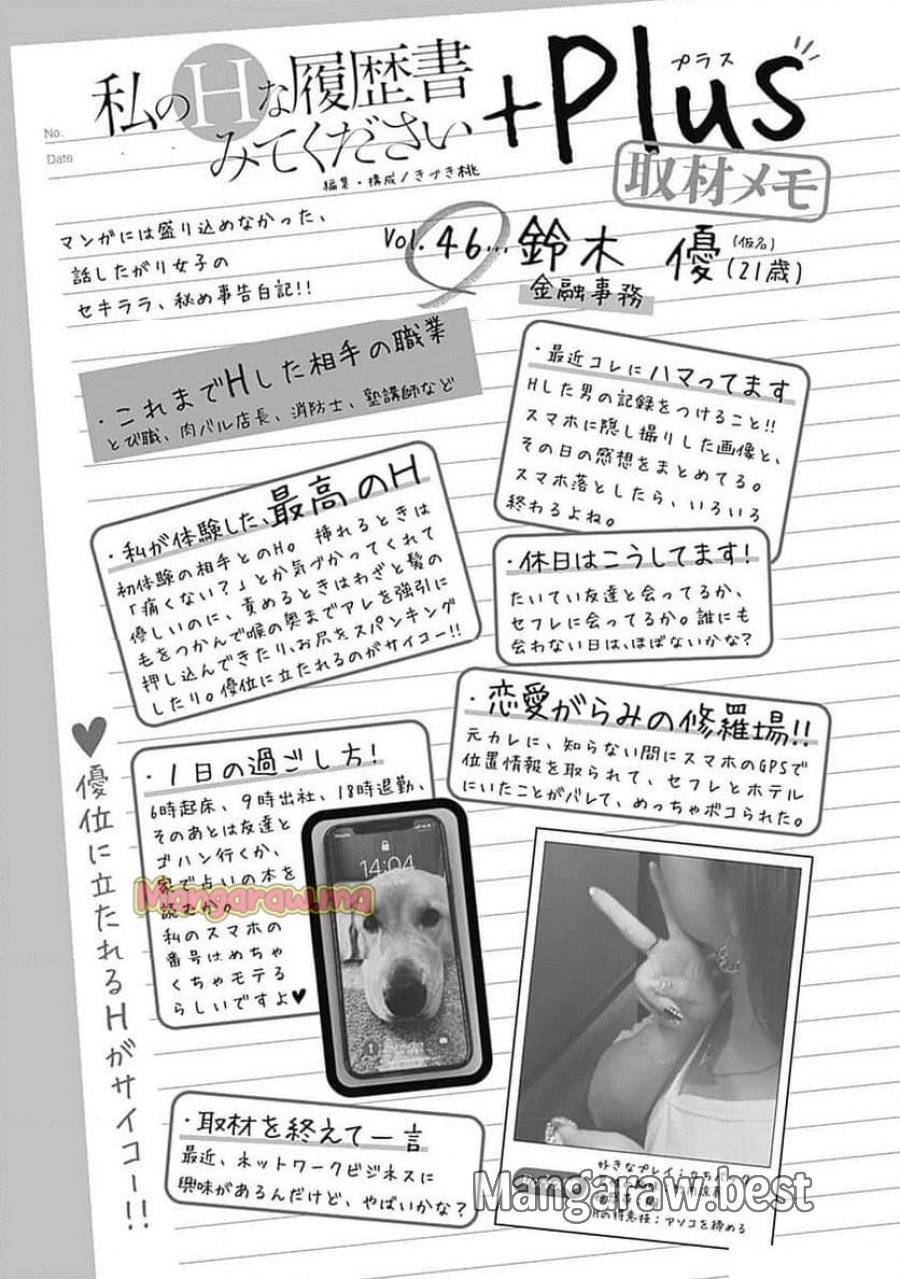 私のHな履歴書
みてください
+Plus
プラス
No.
Date
編集・構成/きづき桃
取材メモ
マンガには盛り込めなかった、
話したがり女子の
セキララ、秘め事告白記!!
Vol.46... 鈴木 優(仮名)(21歳)
金融事務
・これまでHした相手の職業
とび職、肉バル店長、消防士、塾講師など
・最近コレにハマってます
Hした男の記録をつけること!!
スマホに隠し撮りした画像と、
その日の感想をまとめてる。
スマホ落としたら、いろいろ
終わるよね。
・私が体験した、最高のH
初体験の相手とのH。挿れるときは
「痛くない?」とか気づかってくれて
優しいのに、責めるときはわざと髪の
毛をつかんで喉の奥までアレを強引に
押し込んできたり、お尻をスパンキング
したり。優位に立たれるのがサイコー!!
・休日はこうしてます!
たいてい友達と会ってるか、
セフレに会ってるか。誰にも
会わない日は、ほぼないかな?
・恋愛がらみの修羅場!!
元カレに、知らない間にスマホのGPSで
位置情報を取られて、セフレとホテル
にいたことがバレて、めっちゃボコられた。
・1日の過ごし方!
6時起床、9時出社、18時退勤、
そのあとは友達と
ゴハン行くか、
家で占いの本を
読むか。
私のスマホの
番号はめちゃ
くちゃモテる
らしいですよ♥
14:04
Mangaraw.ma
♥優位に立たれるHがサイコー!!
・取材を終えて一言
最近、ネットワークビジネスに
興味があるんだけど、やばいかな?
好きなプレイ:立ちバック
Hの得意技:アソコを締める
Mangaraw.best